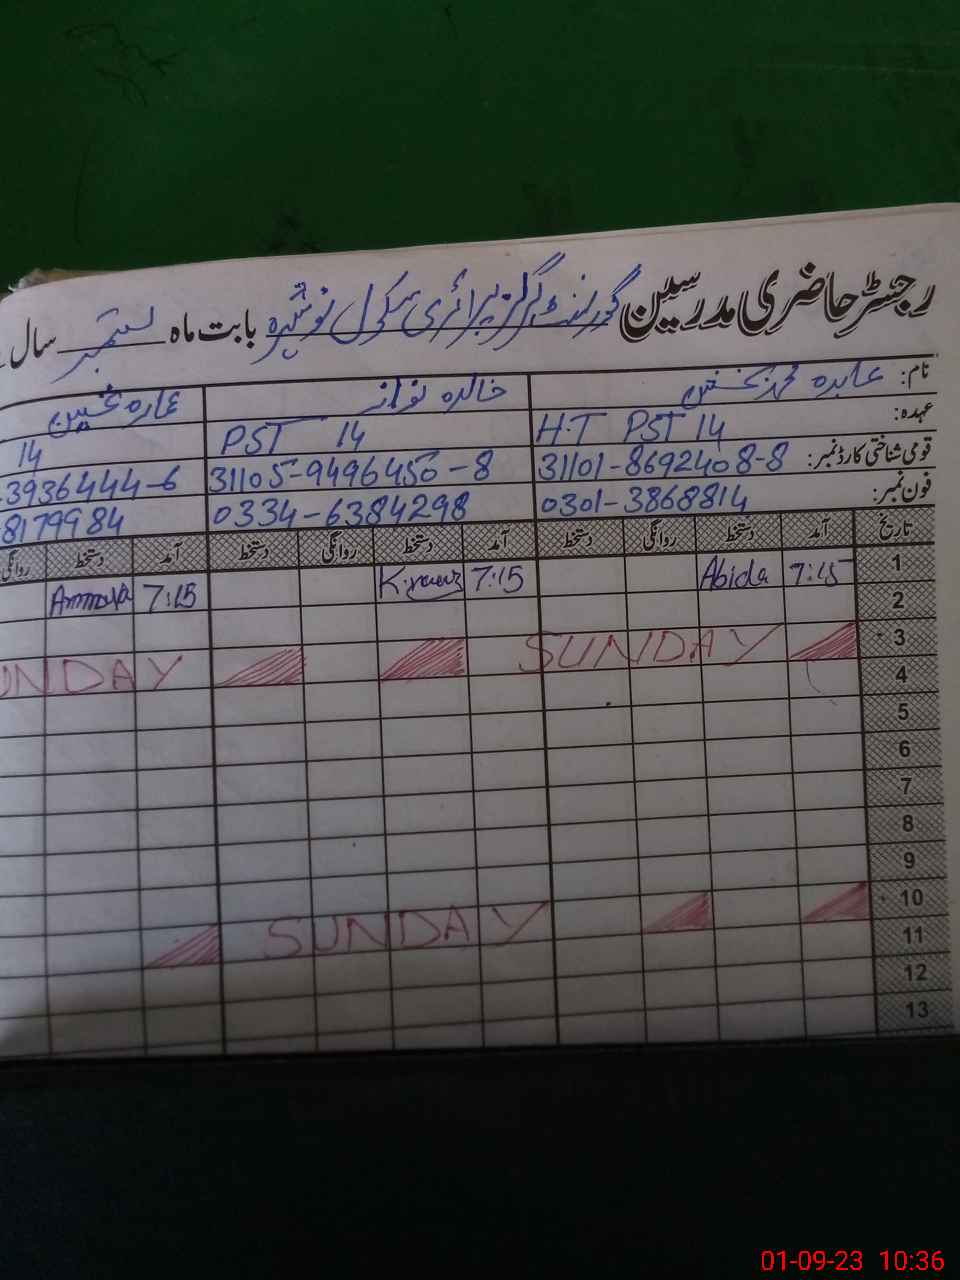 رجسٹر حاضری مدرسین گورنمنٹ گرلز پرائمری سکول نوشہرہ بابت ماہ ستمبر سال
نام: عابدہ محمد بخش خالدہ نواز عمارہ
عہدہ: H.T PST 14 PST 14 14
قومی شناختی کارڈ نمبر: 31101-8692408-8 31105-9496450-8 3936444-6
فون نمبر: 0301-3868814 0334-6384298 8179984
تاریخ آمد دستخط روانگی دستخط آمد دستخط روانگی دستخط آمد دستخط روانگی
1 7:15 Abida 7:15 K.nawaz 7:15 Ammara
2
3 SUNDAY SUNDAY
4
5
6
7
8
9
10 SUNDAY
11
12
13
01-09-23 10:36